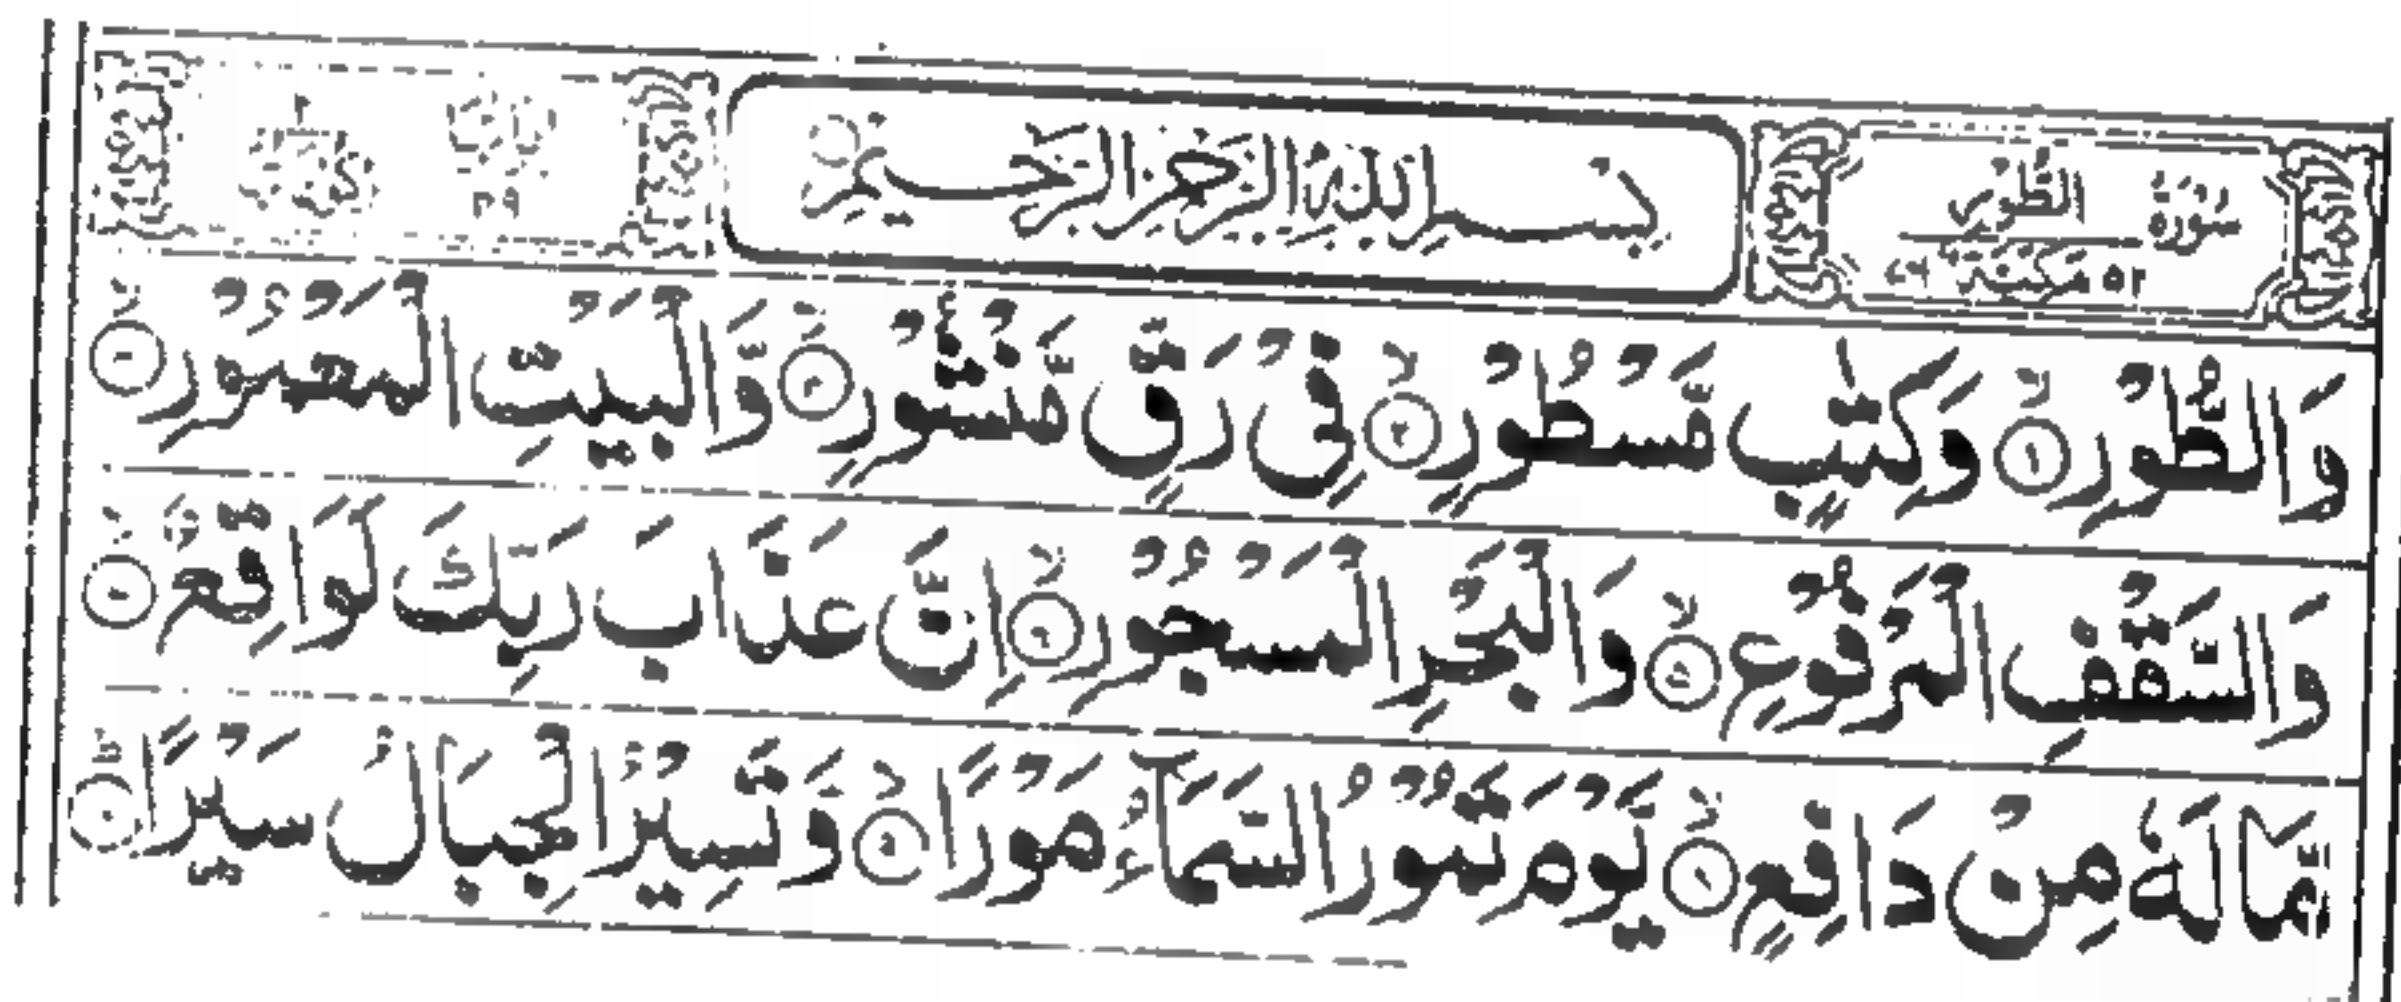 سُوْرَةُ الطُّوْرِ بِسْمِ اللّٰهِ الرَّحْمٰنِ الرَّحِيْمِ
٥٢ مَكِّيَّةٌ
وَالطُّوْرِۙ ۝١ وَكِتٰبٍ مَّسْطُوْرٍۙ ۝٢ فِیْ رَقٍّ مَّنْشُوْرٍۙ ۝٣ وَّالْبَيْتِ الْمَعْمُوْرِۙ ۝٤
وَالسَّقْفِ الْمَرْفُوْعِۙ ۝٥ وَالْبَحْرِ الْمَسْجُوْرِۙ ۝٦ اِنَّ عَذَابَ رَبِّكَ لَوَاقِعٌۙ ۝٧
مَّا لَهٗ مِنْ دَافِعٍۙ ۝٨ يَّوْمَ تَمُوْرُ السَّمَآءُ مَوْرًاۙ ۝٩ وَّتَسِيْرُ الْجِبَالُ سَيْرًاؕ ۝١٠